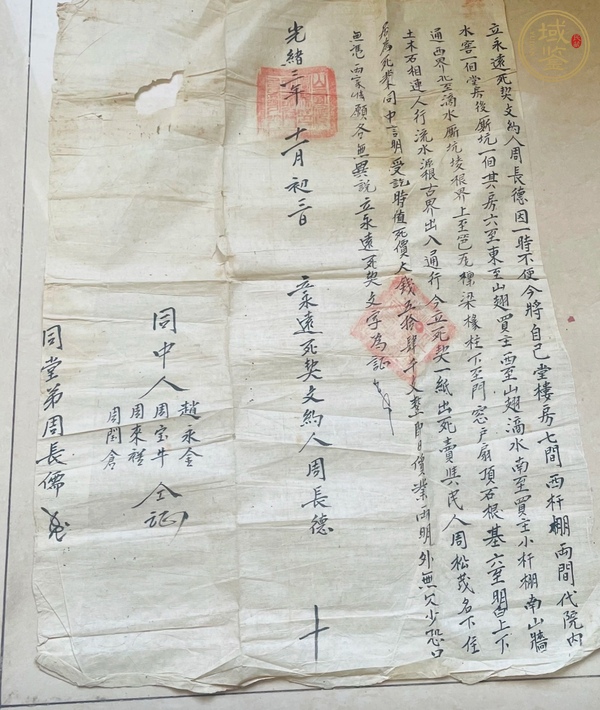 立永遠死契文約人周長德因一時不便今將自己堂樓房七間西杆棚両間代院内
水窖一佪堂房後厮坑一佪其房六至東至山翅買主西至山翅滴水南至買主小杆棚南山牆
通西界北至滴水厮坑堎根界上至笆瓦檁梁椽柱下至門窓戸扇頂石根基六至明白上下
土木石相連人行流水派根古界出入通行今立死契一紙出死賣與民人周松茂名下住
居為死業同中言明受訖時值死價大錢五拾肆千文整即日價業両明外無欠少恐口
無憑両家情願各無異說立永遠死契文字為証
光緒三年十一月初三日
立永遠死契文約人周長德 十
同中人
趙永金
周宝井
周來禮
周閏倉
仝証
同堂弟周長儒
域鉴